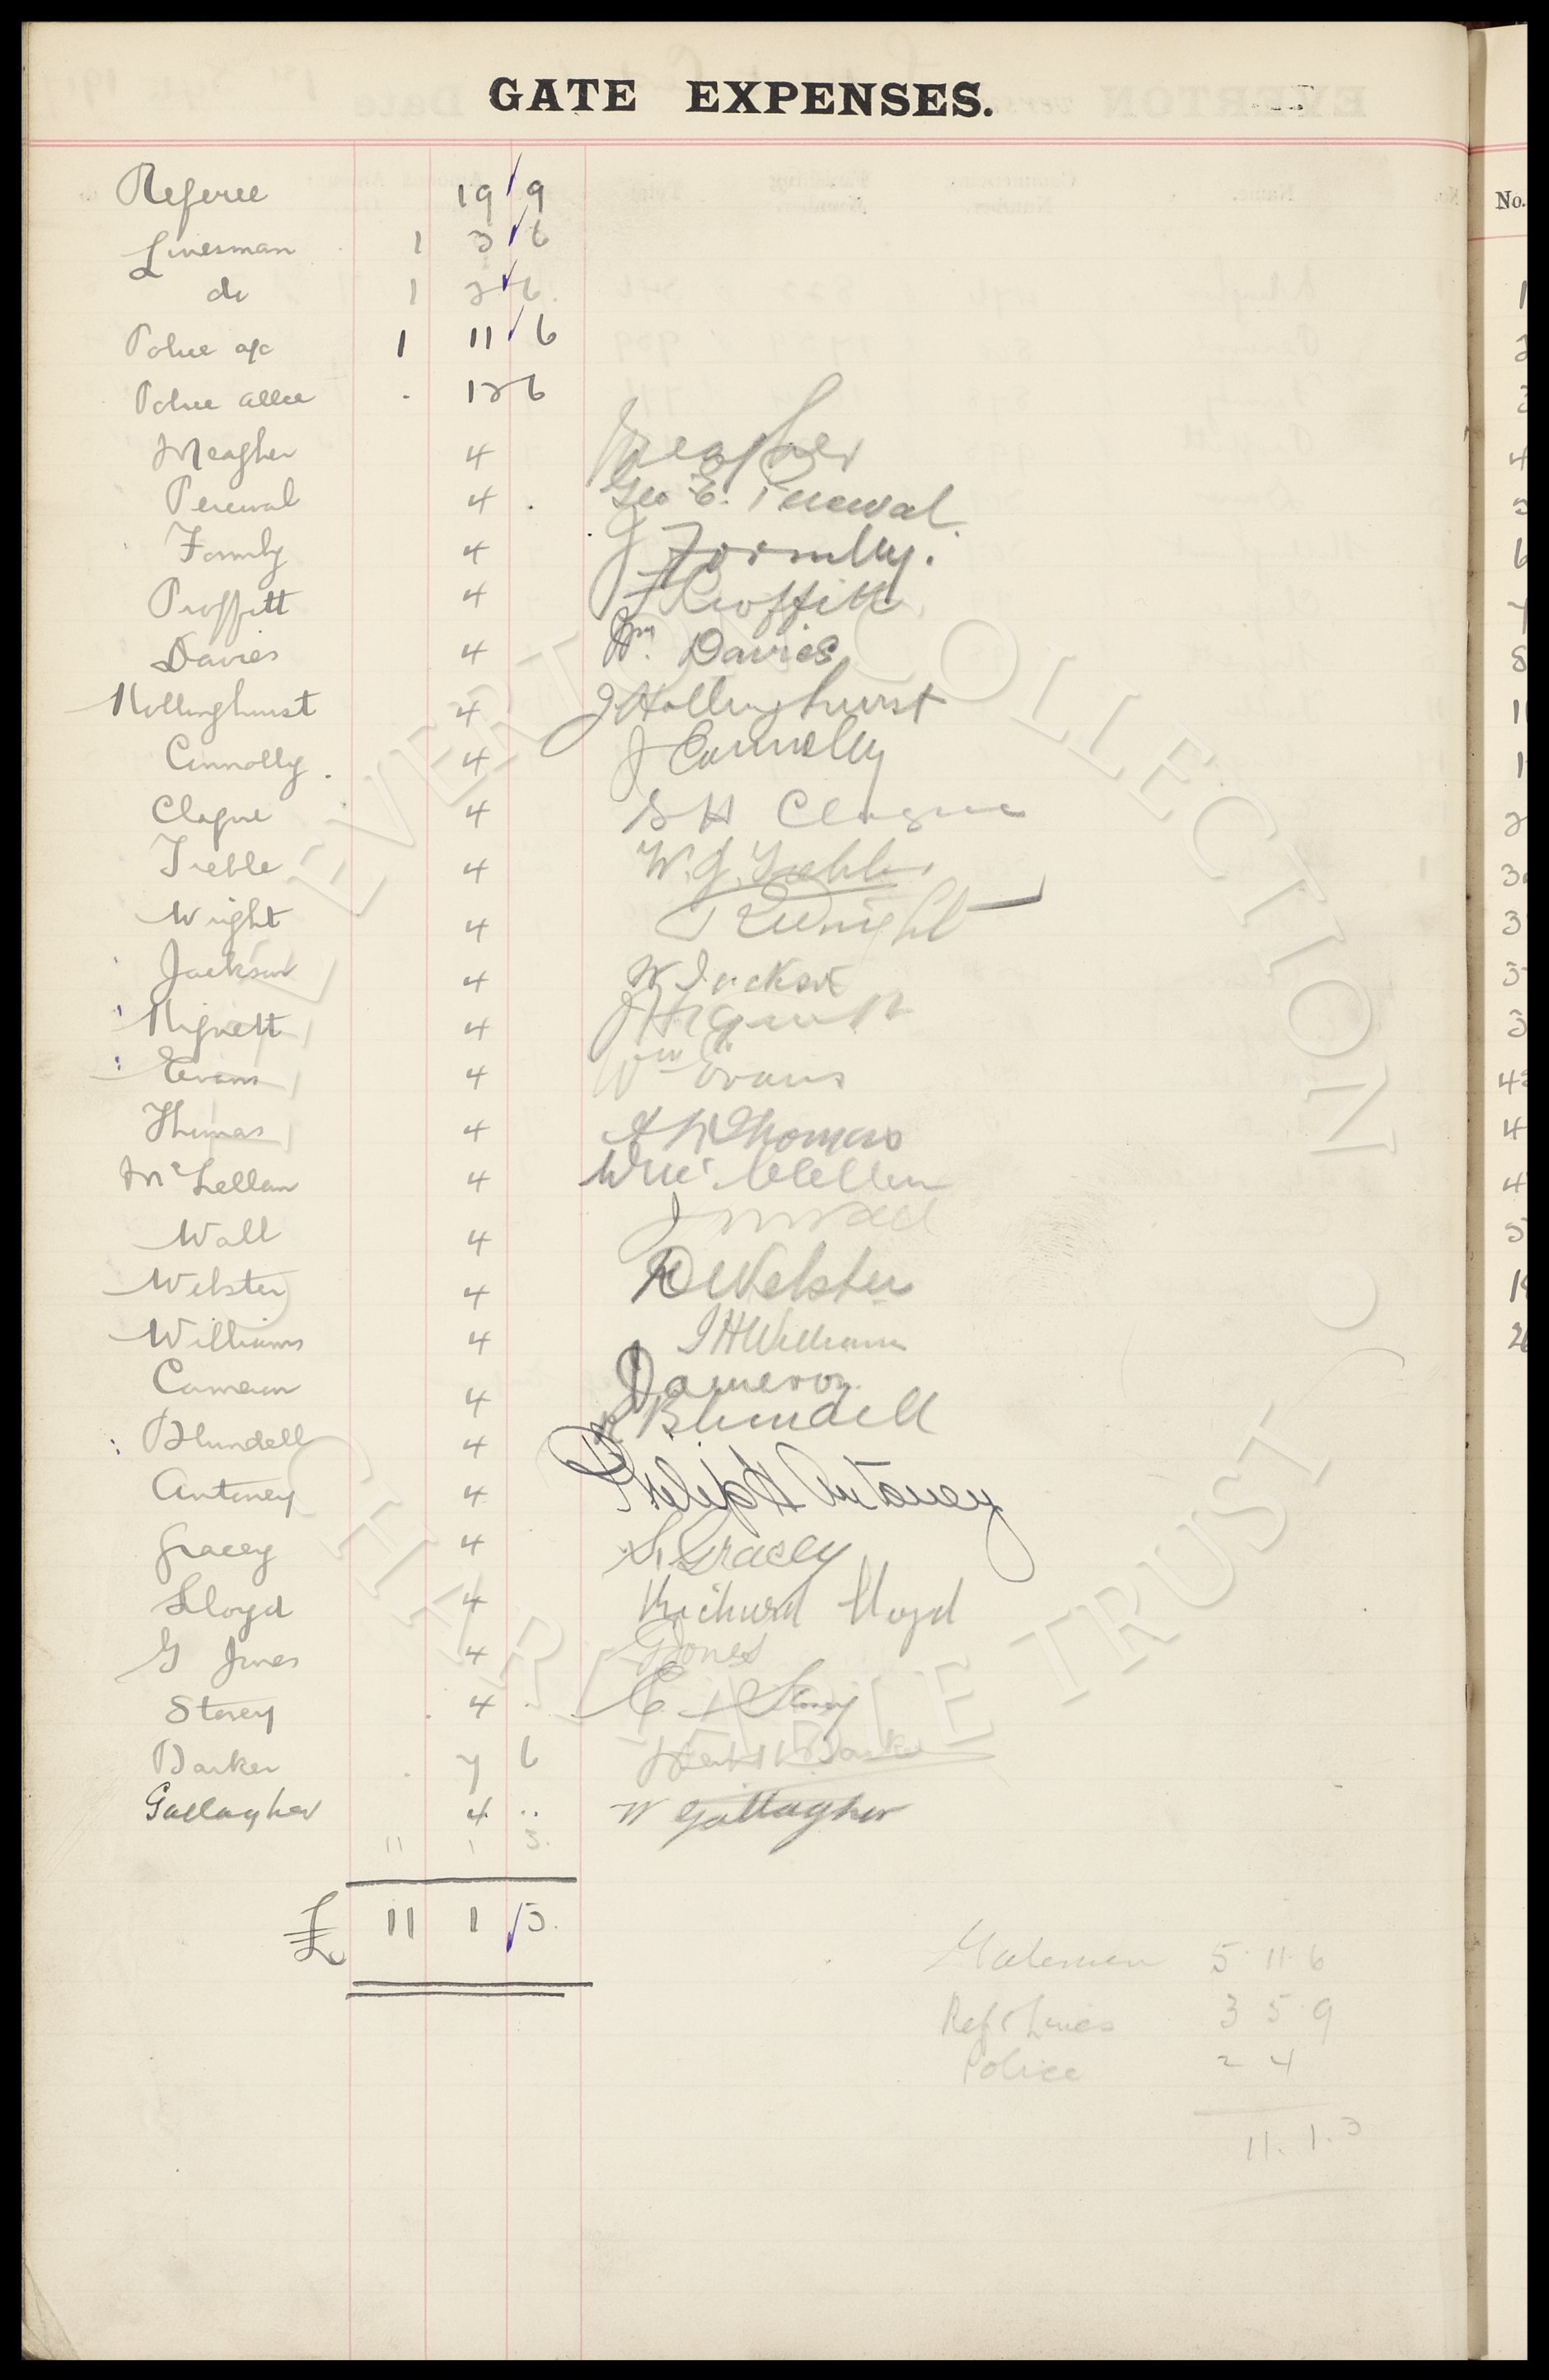 GATE EXPENSES.
Referee 19 9
Linesman 1 3 6
do 1 2 6.
Police a/c 1 11 6
Police allce . 12 6
Meagher 4 Meagher
Percival 4 . Geo E. Percival.
Formby 4 J Formby.
Proffitt 4 J Proffitt
Davies 4 Wm. Davies
Hollinghurst 4 J Hollinghurst
Connolly. 4 J Connolly
Clague 4 S H Clague
Treble 4 W. J. Treble
Wright 4 Wright
Jackson 4 W. Jackson
Hignett 4 J Hignett
Evans 4 Wm Evans
Thomas 4 Thomas
McLellan 4 Wm Mc Clellan
Wall 4 J Wall
Webster 4 Webster
Williams 4 J H Williams
Cameron 4 D Cameron
Blundell 4 R Blundell
Antoney 4 Philip H Antoney
Gracey 4 S. Gracey
Lloyd 4 Richard Lloyd
G Jones 4 G Jones
Storey . 4 . C Storey
Barker . 7 6 Barker
Gallagher 4 .. W Gallagher
11 1 3.
£ 11 1 3.
Gatemen 5 11 6
Ref & Lines 3 5 9
Police 2 4
11. 1. 3
No.
EVERTON COLLECTION CHARITABLE TRUST